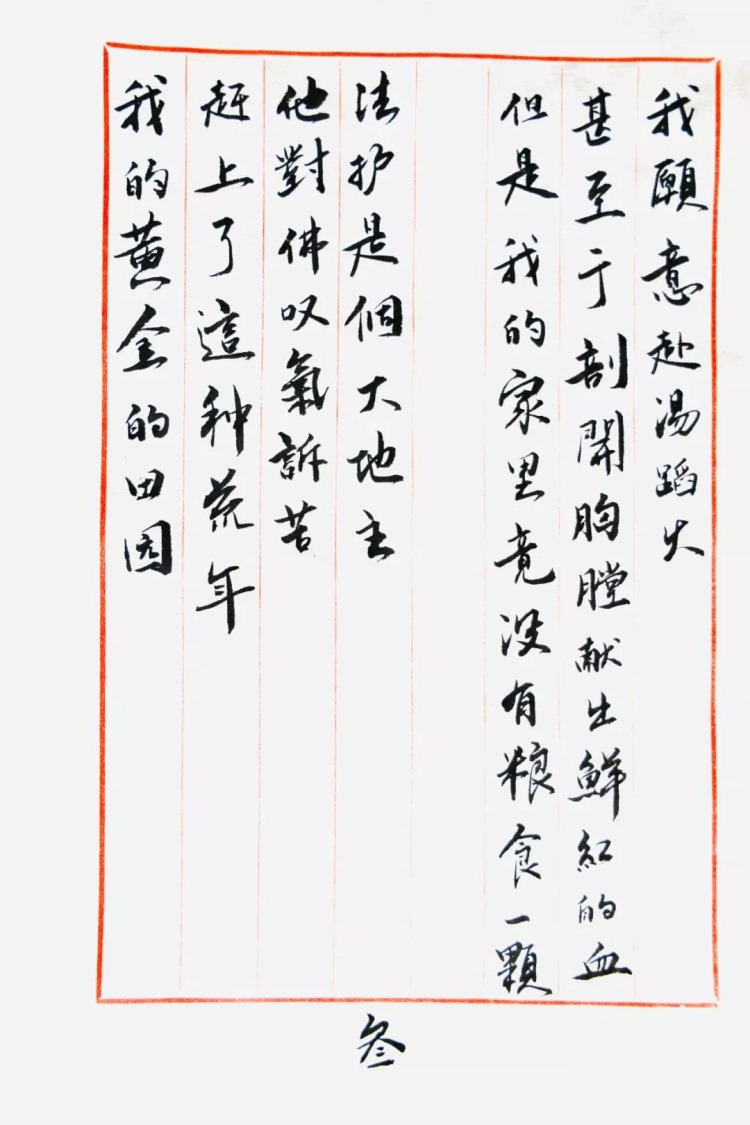 我願意赴湯蹈火
甚至于剖開胸膛献出鮮紅的血
但是我的家里竟没有粮食一顆
法护是個大地主
他對佛叹氣訴苦
赶上了這种荒年
我的黄金的田园
叁